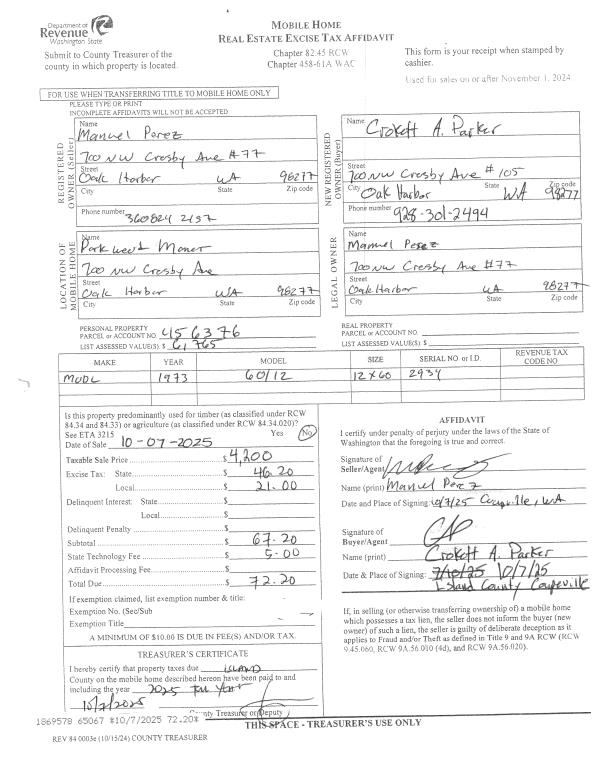 Department of
Revenue
Washington State
MOBILE HOME
REAL ESTATE EXCISE TAX AFFIDAVIT
Submit to County Treasurer of the
county in which property is located.
Chapter 82.45 RCW
Chapter 458-61A WAC
This form is your receipt when stamped by
cashier.
Used for sales on or after November 1, 2024
FOR USE WHEN TRANSFERRING TITLE TO MOBILE HOME ONLY
PLEASE TYPE OR PRINT
INCOMPLETE AFFIDAVITS WILL NOT BE ACCEPTED
REGISTERED
OWNER (Seller)
Name
Manuel Perez
700 NW Crosby Ave #77
Street
Oak Harbor WA 98277
City State Zip code
Phone number 360824 2137
NEW REGISTERED
OWNER (Buyer)
Name
Crokett A. Parker
Street
700 NW Crosby Ave # 105
Oak Harbor WA 98277
City State Zip code
Phone number 928-301-2494
LOCATION OF
MOBILE HOME
Name
Parkwest Maner
700 NW Crosby Ave
Street
Oak Harbor WA 98277
City State Zip code
LEGAL OWNER
Name
Manuel Perez
700 NW Crosby Ave #77
Street
Oak Harbor WA 98277
City State Zip code
PERSONAL PROPERTY
PARCEL or ACCOUNT NO. 456376
LIST ASSESSED VALUE(S): $ 61765
REAL PROPERTY
PARCEL or ACCOUNT NO.
LIST ASSESSED VALUE(S): $
MAKE YEAR MODEL SIZE SERIAL NO. or I.D. REVENUE TAX CODE NO
MODL 1973 60/12 12x60 2934
Is this property predominantly used for timber (as classified under RCW
84.34 and 84.33) or agriculture (as classified under RCW 84.34.020)?
See ETA 3215 Yes No
Date of Sale 10-07-2025
Taxable Sale Price $ 4,200
Excise Tax: State $ 46.20
Local $ 21.00
Delinquent Interest: State $
Local $
Delinquent Penalty $
Subtotal $ 67.20
State Technology Fee $ 5.00
Affidavit Processing Fee $
Total Due $ 72.20
If exemption claimed, list exemption number & title:
Exemption No. (Sec/Sub
Exemption Title
A MINIMUM OF $10.00 IS DUE IN FEE(S) AND/OR TAX.
TREASURER'S CERTIFICATE
I hereby certify that property taxes due ISLAND
County on the mobile home described hereon have been paid to and
including the year 2025
10/7/2025
County Treasurer or Deputy
AFFIDAVIT
I certify under penalty of perjury under the laws of the State of
Washington that the foregoing is true and correct.
Signature of
Seller/Agent
Name (print) Manuel Perez
Date and Place of Signing: 10/7/25 Coupville, WA
Signature of
Buyer/Agent
Name (print) Crokett A. Parker
Date & Place of Signing: 7/10/25 10/7/25
Island County Coupeville
If, in selling (or otherwise transferring ownership of) a mobile home
which possesses a tax lien, the seller does not inform the buyer (new
owner) of such a lien, the seller is guilty of deliberate deception as it
applies to Fraud and/or Theft as defined in Title 9 and 9A RCW (RCW
9.45.060, RCW 9A.56.010 (4d), and RCW 9A.56.020).
1869578 65067 *10/7/2025 72.20*
THIS SPACE - TREASURER'S USE ONLY
REV 84 0003e (10/15/24) COUNTY TREASURER